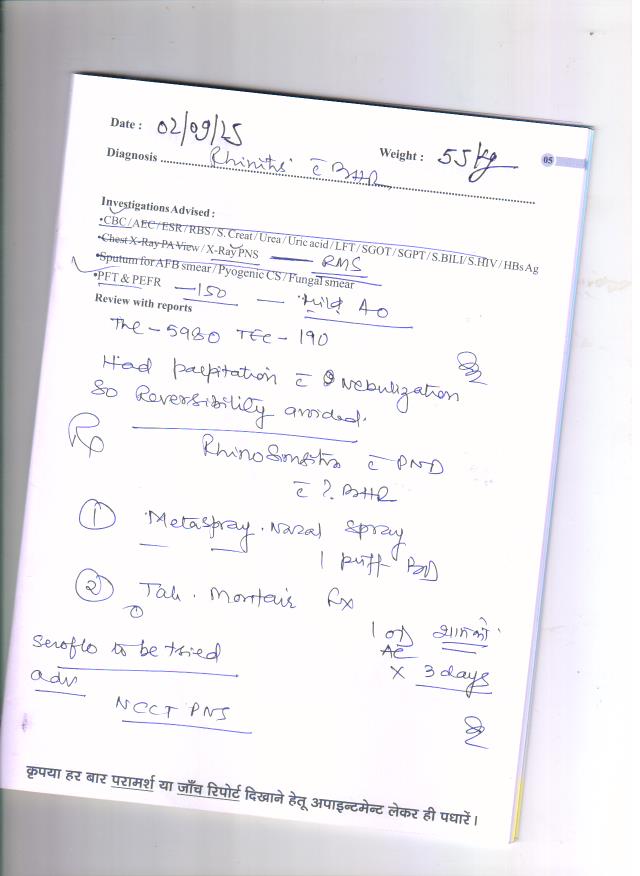 Date : 02/09/25
Weight : 55 kg
05
Diagnosis Rhinitis c̄ BHR
Investigations Advised :
•CBC / AEC / ESR / RBS / S. Creat / Urea / Uric acid / LFT / SGOT / SGPT / S.BILI / S.HIV / HBs Ag
•Chest X-Ray PA View / X-Ray PNS — RMS
•Sputum for AFB smear / Pyogenic CS / Fungal smear
•PFT & PEFR — 150 — Mild AO
Review with reports
TLC - 5980 TEC - 190
Had palpitation c̄ nebulization
So Reversibility avoided.
Rp
RhinoSinusitis c̄ PND
c̄ ?. BHR
① Metaspray Nasal Spray
1 puff BD
② Tab. Montair Fx
1 OD शाम को
AC
x 3 days
Seroflo to be tried
adv
NCCT PNS
कृपया हर बार परामर्श या जाँच रिपोर्ट दिखाने हेतू अपाइन्टमेन्ट लेकर ही पधारें।